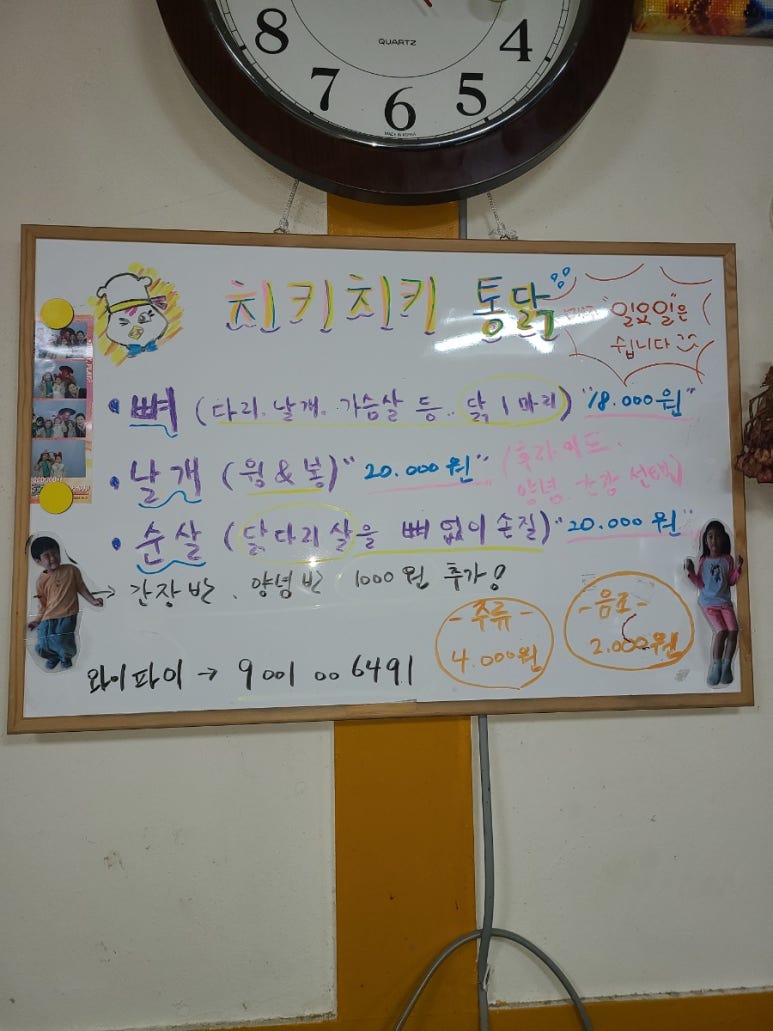 8 7 6 5 4
QUARTZ
치키치키 통닭
"일요일"은
쉽니다
• 뼈 (다리. 날개. 가슴살 등.. 닭 1 마리) "18.000원"
• 날개 (윙 & 봉) "20.000원" (후라이드.
양념. 간장 선택)
• 순살 (닭다리살을 뼈 없이 손질) "20.000원"
→ 간장반. 양념반 1000원 추가!
- 주류 -
4.000원
- 음료 -
2.000원
와이파이 → 9001 00 6491